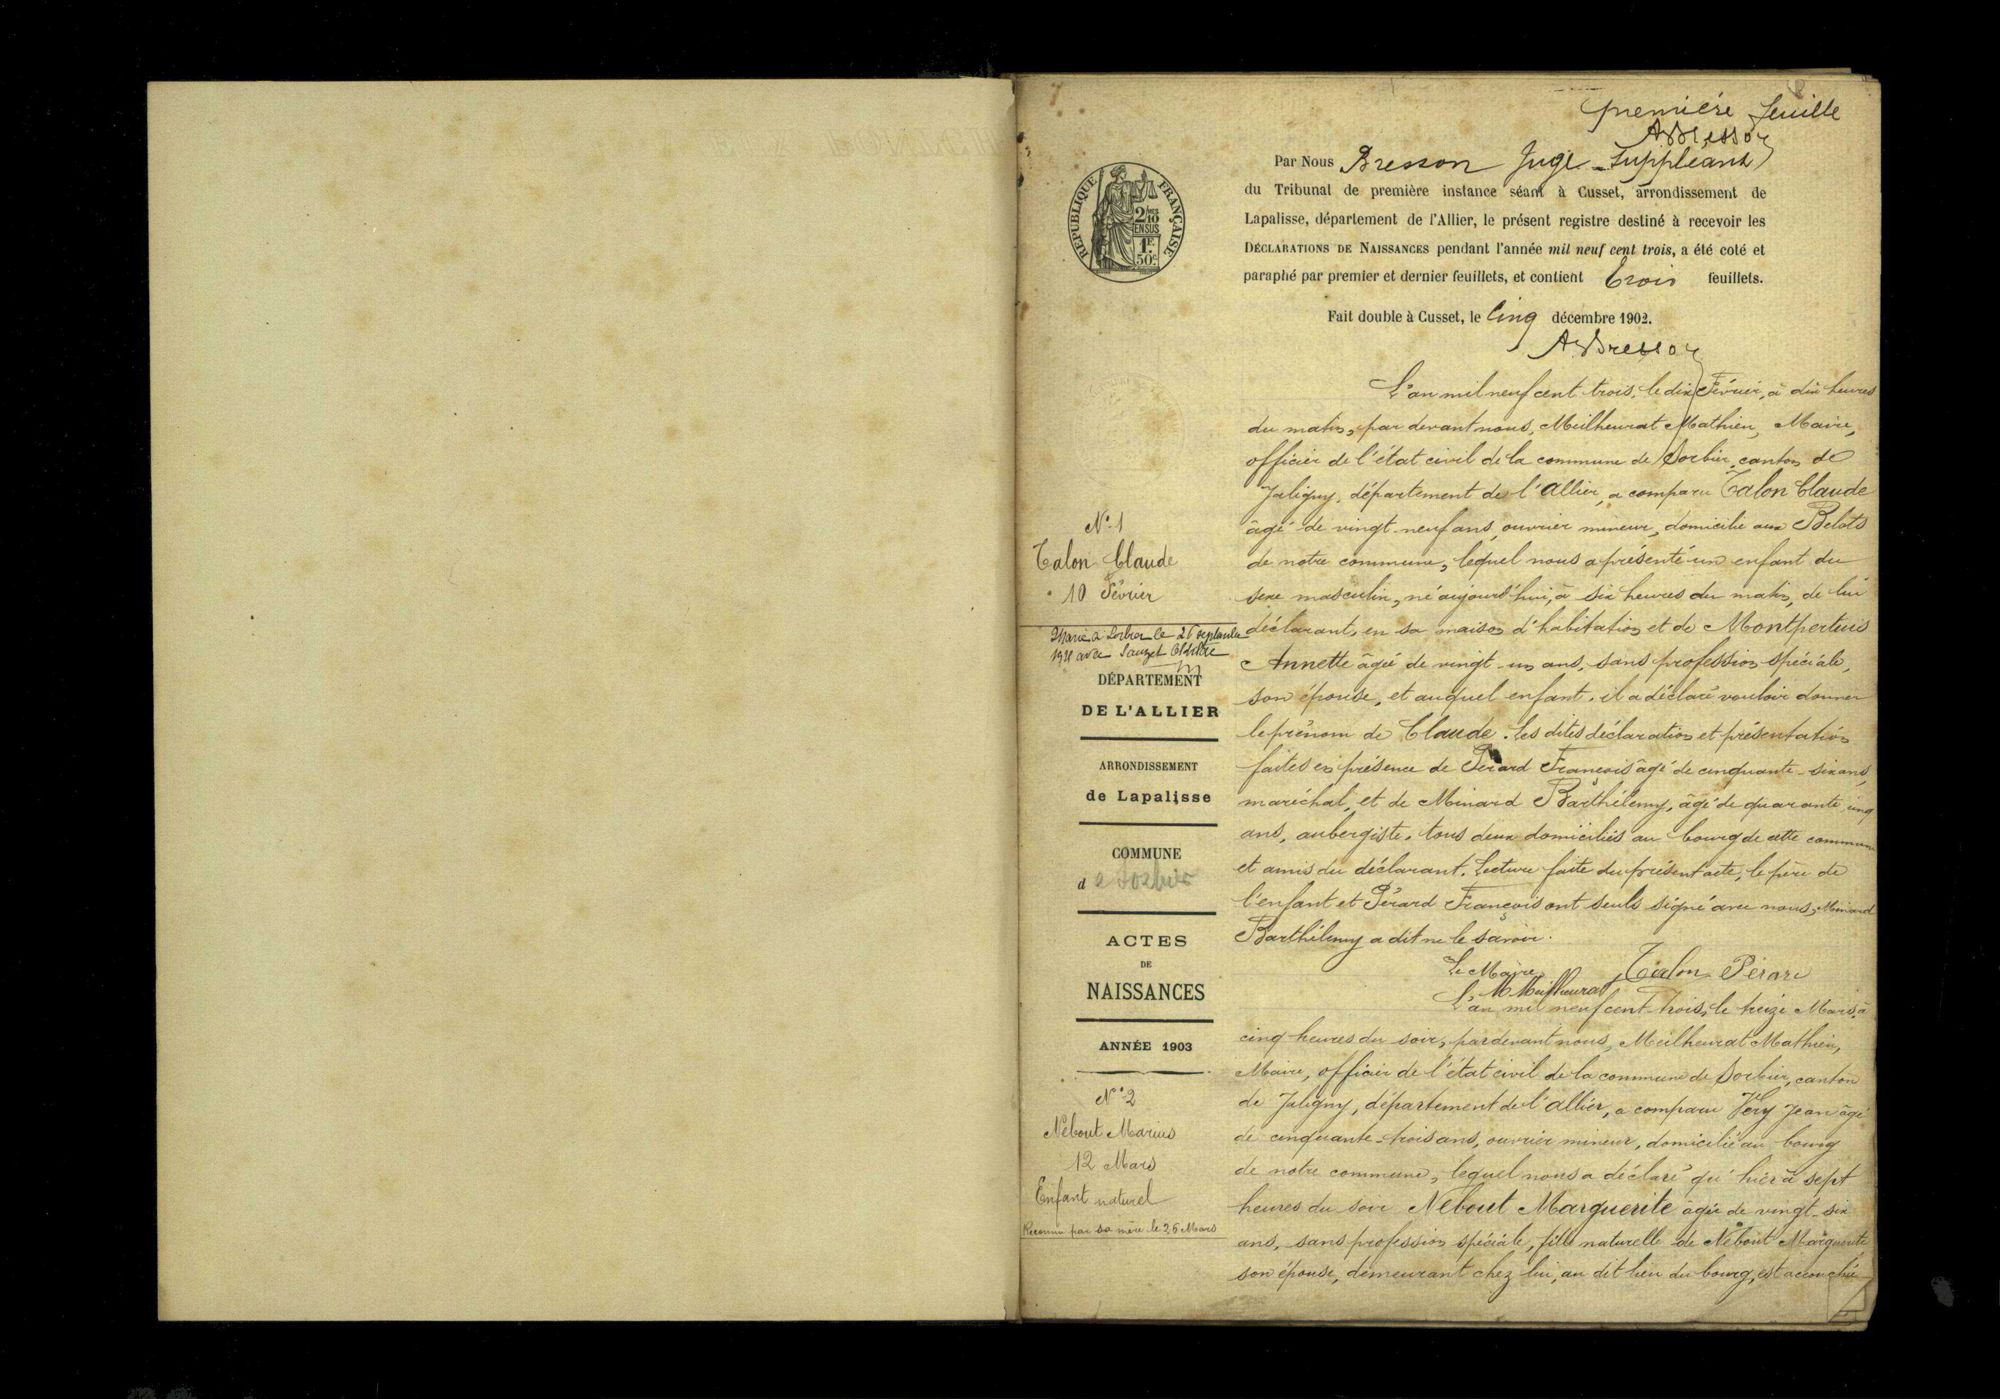 première feuille
A. Bresson
Par Nous Bresson Juge suppléant
du Tribunal de première instance séant à Cusset, arrondissement de
Lapalisse, département de l'Allier, le présent registre destiné à recevoir les
DÉCLARATIONS DE NAISSANCES pendant l'année mil neuf cent trois, a été coté et
paraphé par premier et dernier feuillets, et contient trois feuillets.
Fait double à Cusset, le Cinq décembre 1902.
A. Bresson
RÉPUBLIQUE FRANÇAISE
2/10
EN SUS
1F.
50c
N° 1
Talon Claude
10 Février
Marié à Sorbier le 26 septembre
avec Sauzet
DÉPARTEMENT
DE L'ALLIER
ARRONDISSEMENT
de Lapalisse
COMMUNE
de Sorbier
ACTES
DE
NAISSANCES
ANNÉE 1903
N° 2
Nebout Marius
12 Mars
Enfant naturel
Reconnu par sa mère le 26 Mars
L'an mil neuf cent trois, le dix Février, à dix heures
du matin, par devant nous, Meilheurat Mathieu, Maire,
officier de l'état civil de la commune de Sorbier, canton de
Jaligny, département de l'Allier, a comparu Talon Claude
âgé de vingt-neuf ans, ouvrier mineur, domicilié aux Belots
de notre commune, lequel nous a présenté un enfant du
sexe masculin, né aujourd'hui, à six heures du matin, de lui
déclarant, en sa maison d'habitation et de Montpertuis
Annette âgée de vingt-un ans, sans profession spéciale,
son épouse, et auquel enfant il a déclaré vouloir donner
le prénom de Claude. Les dites déclaration et présentation
faites en présence de Pérard François âgé de cinquante-six ans,
maréchal, et de Minard Barthélemy, âgé de quarante cinq
ans, aubergiste, tous deux domiciliés au bourg de cette commune
et amis du déclarant. Lecture faite du présent acte, le père de
l'enfant et Pérard François ont seuls signé avec nous, Minard
Barthélemy a dit ne le savoir.
Le Maire, Talon Pérard
M Meilheurat
L'an mil neuf cent trois, le treize Mars, à
cinq heures du soir, par devant nous, Meilheurat Mathieu,
Maire, officier de l'état civil de la commune de Sorbier, canton
de Jaligny, département de l'Allier, a comparu Véry Jean âgé
de cinquante-trois ans, ouvrier mineur, domicilié au bourg
de notre commune, lequel nous a déclaré qu'hier à sept
heures du soir Nebout Marguerite âgée de vingt-six
ans, sans profession spéciale, fille naturelle de Nebout Marguerite
son épouse, demeurant chez lui, au dit lieu du bourg, est accouchée